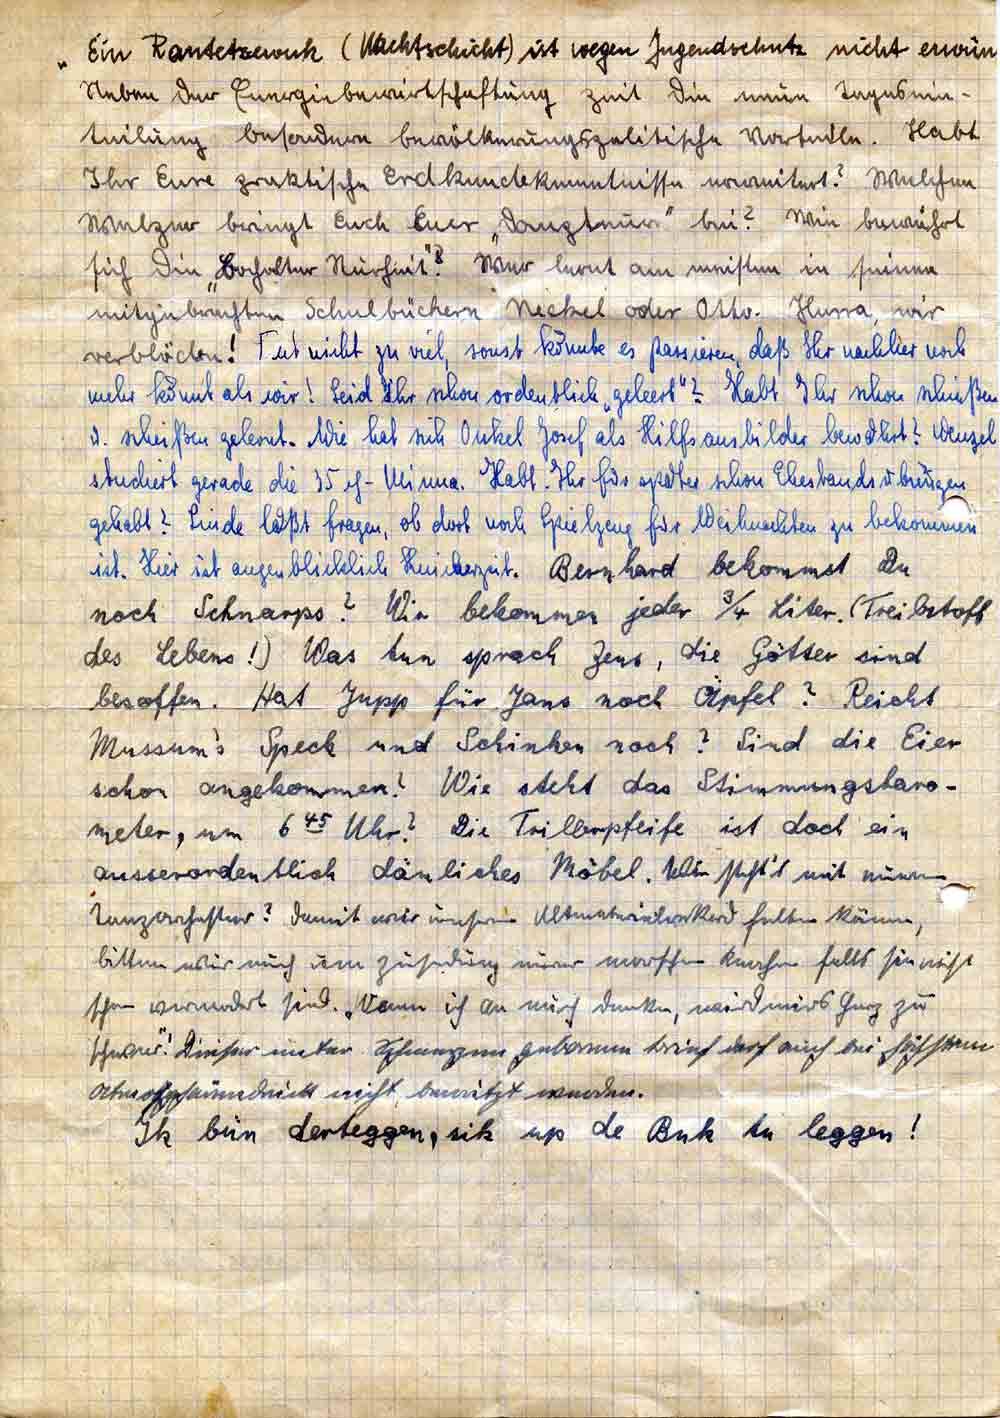 „Ein Rantetzewuk (Nachtschicht) ist wegen Jugendschutz nicht erwün
Neben der Energiebewirtschaftung zeit die neue Tagesein-
teilung besondere bevölkerungspolitische Vorteile. Habt
Ihr Eure praktische Erdkundekenntnisse erweitert? Welchen
Walzer bringt Euch Euer „Tanzteur" bei? Wie bewährt
sich die „Bocholter Kürheit"? Wer lernt am meisten in seinen
mitgebrachten Schulbüchern Nickel oder Otto. Hurra, wir
verblöden! Tut nicht zu viel, sonst könnte es passieren, daß Ihr nachher noch
mehr könnt als wir! Seid Ihr schon ordentlich „geleert"? Habt Ihr schon schießen
u. scheißen gelernt. Wie hat sich Onkel Josef als Hilfsausbilder bewährt? Wenzel
studiert gerade die 35 er-Minna. Habt Ihr für später schon Ehestandsübungen
gehabt? Linde läßt fragen, ob dort noch Spielzeug für Weihnachten zu bekommen
ist. Hier ist augenblicklich Knickerzeit. Bernhard bekommst Du
noch Schnarps? Wir bekommen jeder 3/4 Liter. (Treibstoff
des Lebens!) Was tun sprach Zeus, die Götter sind
besoffen. Hat Jupp für Jans noch Äpfel? Reicht
Mussum's Speck und Schinken noch? Sind die Eier
schon angekommen? Wie steht das Stimmungsbaro-
meter, um 6 45 Uhr? Die Trillerpfeife ist doch ein
ausserordentlich dänliches Möbel. Wie steht's mit eurem
Tanzorchester? Damit wir unseren fallen können,
bitten wir euch um Zusendung eurer Knochen falls sie nicht
schon vermodert sind. „Wenn ich an euch denke, wird mirs Herz zu
schwer"! Dieser unter geborene Brief darf auch bei höchstem
Atmosphärendruck nicht benützt werden.
Ik bün derteggen, sik up de Buk tu leggen!